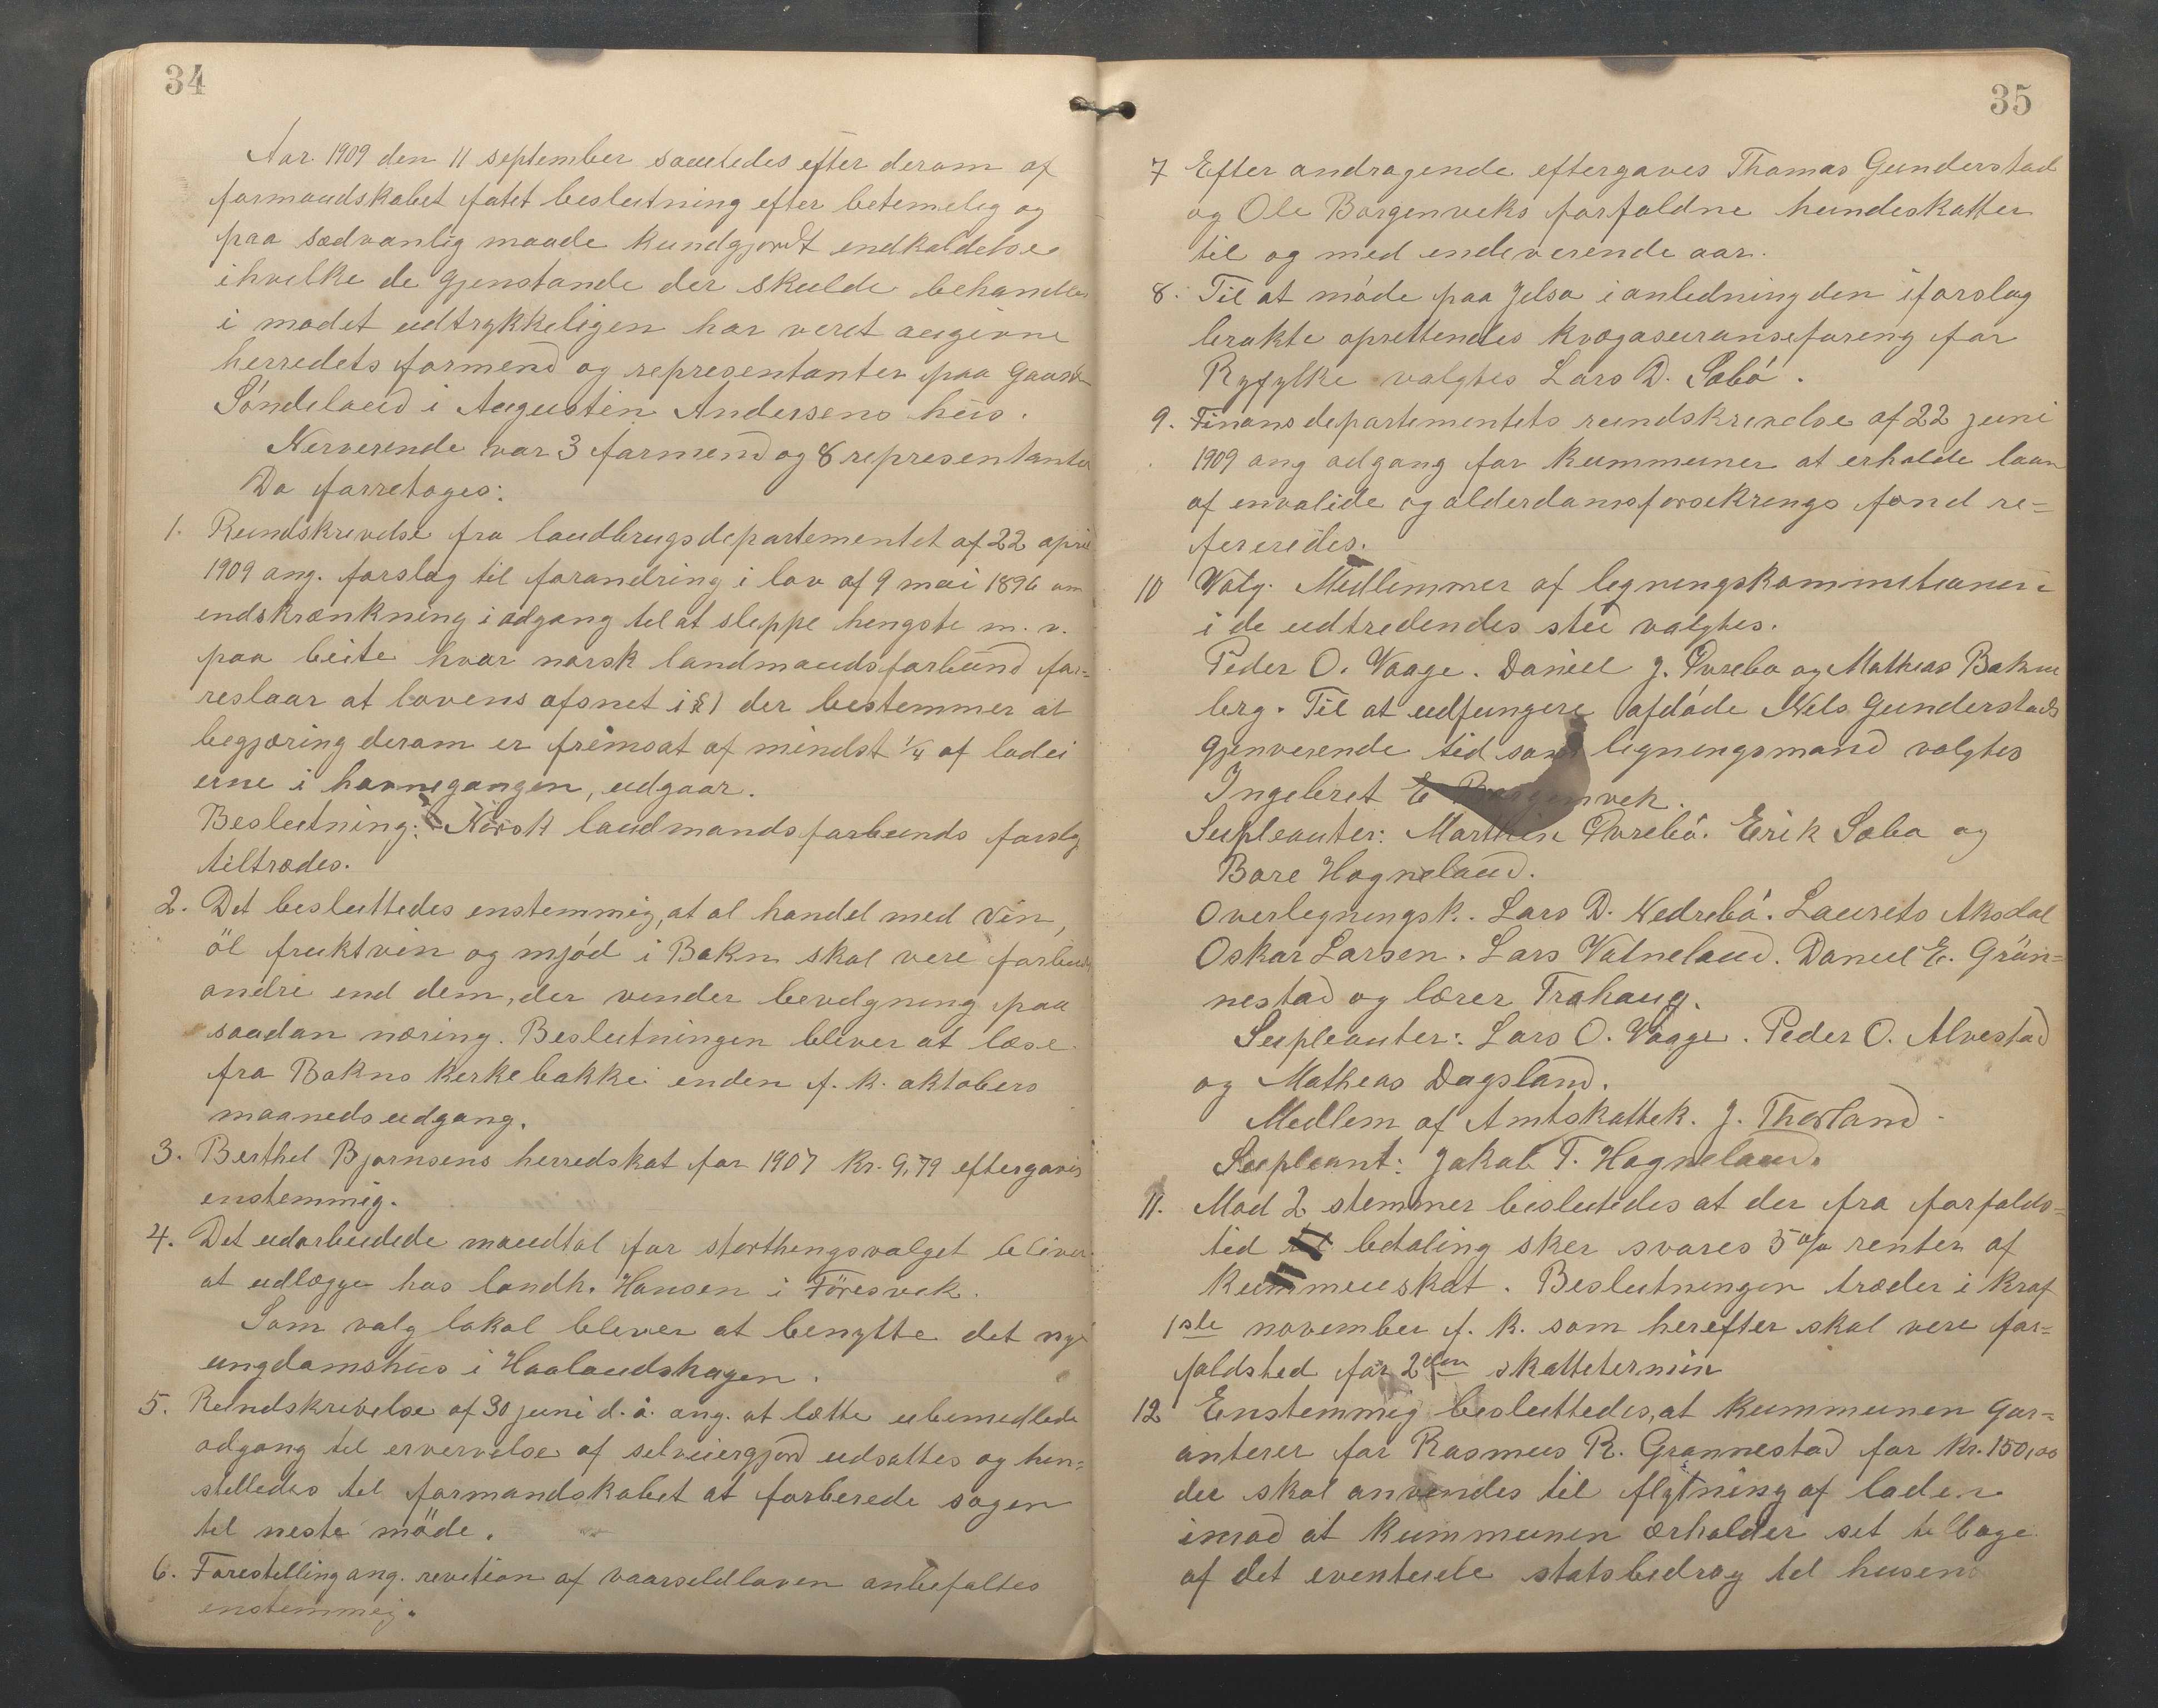 34
Aar 1909 den 11 september samledes efter derom af
formandskabet fatet beslutning efter betemelig og
paa sædvanlig maade kundgjordt endkaldelse
ihvelke de gjenstande der skulde behandles
i mødet udtrykkeligen har veret angivne
herredets formend og representanter paa Gaard
Sóndeland i Augustin Andersens hus.
Nerverende var 3 formend og 8 representanter
Da forretoges:
1. Rundskrevelse fra landbrugsdepartementet af 22 april
1909 ang. forslag til forandring i lov af 9 mai 1896 om
endskrænkning i adgang tel at sleppe hengste m. v.
paa beite hvor norsk landmandsforbund for-
reslaar at lovens afsnet i § 1 der bestemmer at
begjæring derom er fremsat af mindst 1/4 af lodei
erne i havnegangen, udgaar.
Beslutning: Norsk landmandsforbunds forslg
tiltrædes.
2. Det besluttedes enstemmig, at al handel med vin,
öl fruktvin og mjód i Bokn skal vere forbudt
andre end dem, der vender bevelgning paa
saadan næring. Beslutningen blever at læse
fra Bokns kerkebakke enden f. k. oktobers
maaneds udgang.
3. Berthel Bjørnsens herredskat for 1907 kr. 9,79 eftergaves
enstemmig.
4. Det udarbeidede mandtal for storthengsvalget bliver
at udlægge hos landh. Hansen i Föresvek.
Som valg lokal blever at benytte det nye
ungdomshus i Haalandshagen.
5. Rundskrivelse af 30 juni d. å. ang. at lætte ubemedlede
adgang tel ervervelse af selveiergjord udsattes og hen-
stelledes tel formandskabet at forberede sagen
tel neste möde.
6. Forestelling ang. revetion af vaarseldloven anbefaltes
enstemmig.
35
7 Efter andragende eftergaves Thomas Gunderstad
og Ole Borgenveks forfaldne hundeskatter
til og med endeverende aar.
8. Til at móde paa Jelsa i anledning den iforslag
brakte oprettendes kvægasuranseforeng for
Ryfylke valgtes Lars D. Sæbó.
9. Finansdepartementets rundskrivelse af 22 juni
1909 ang adgang for kummuner at erholde laan
af envalide og alderdomsforsekrings fond re-
fereredes.
10 Valg. Medlemmer af legningskommetionen
i de udtredendes sted valgtes.
Peder O. Vaage. Daniel J. Øvrebo og Mathias Bokne
berg. Til at udfungere afdóde Nels Gunderstads
gjenverende tid som ligningsmand valgtes
Ingebret E Borgenvek.
Supleanter: Marthin Øvrebó. Erik Sæbø og
Bore Hogneland.
Overlegningsk. Lars D. Nedrebó. Laurets Aksdal
Oskar Larsen. Lars Vatneland. Daniel E. Grön-
nestad og lærer Trahaug.
Supleanter: Lars O. Vaage. Peder O. Alvestad
og Matheas Dagsland.
Medlem af Amtskattek. J. Thorland.
Supleant: Jakob T. Hogneland.
11. Mod 2 stemmer beslutedes at der fra forfalds-
tid til betaling sker svares 5 o/o renter af
Kummuskat. Beslutningen træder i kraf
1ste november f. k. som herefter skal vere for-
faldsted for 2den skattetermin
12 Enstemmig besluttedes, at kummunen gar-
anterer for Rasmus R. Grønnestad for kr. 150,00
der skal anvendes til flytning af laden
imod at kummunen ærholder set tilbage
af det eventuele statsbedrag tel husen